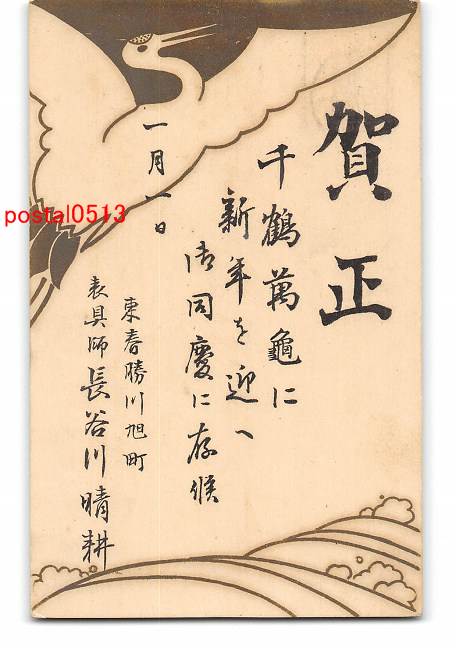 賀正
千鶴萬龜に
新年を迎へ
御同慶に存候
一月一日
東春勝川旭町
表具師 長谷川晴耕
postal0513